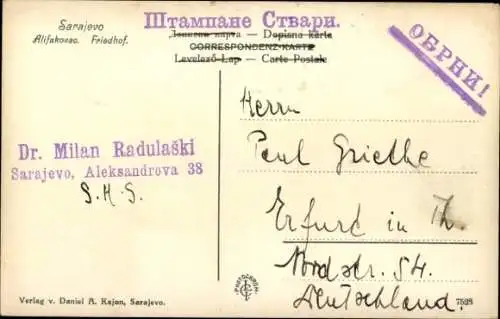 Sarajevo
Alifakovac. Friedhof.
Штампане Ствари.
Дописна карта — Dopisna karta
CORRESPONDENZ-KARTE
Levelező-Lap — Carte Postale
ОБРНИ!
Dr. Milan Radulaški
Sarajevo, Aleksandrova 38
S.H.S.
Herrn
Paul Griethe
Erfurt in Th.
Nordstr. 54.
Deutschland.
Verlag v. Daniel A. Kajon, Sarajevo.
PHOTOCHROM
7528